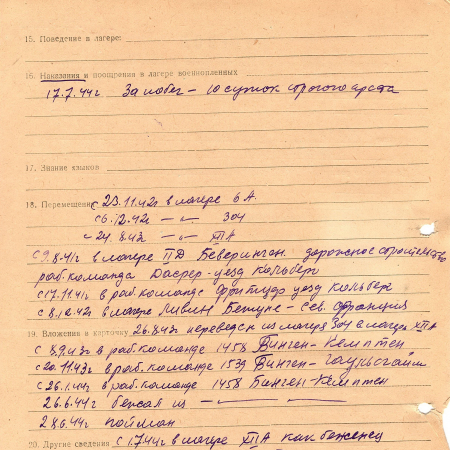 15. Поведение в лагере:
16. Наказания и поощрения в лагере военнопленных
17.7.44г За побег - 10 суток строгого ареста
17. Знание языков
18. Перемещение с 23.11.42г в лагере 6 А
с 6.12.42г -"- 304
с 24.8.43 -"- XIIA
с 9.8.41г в лагере II Д дорожное строительство
раб. команда уезд Кольберг
с 17.11.41г в раб. команде уезд Кольберг
с 8.12.42г в лагере Бетуне - Сев. Франция
19. Вложено в карточку 26.8.43г переведен из лагеря 304 в лагерь XIIA
с 8.9.43г в раб. команде 1458 Бинген-Кемптен
с 20.11.43г в раб. команде 1539 Бинген-Гаульсгайм
с 26.1.44г в раб. команде 1458 Бинген-Кемптен
26.6.44г бежал из -"-
28.6.44г пойман
20. Другие сведения с 1.7.44г в лагере XIIA как беженец